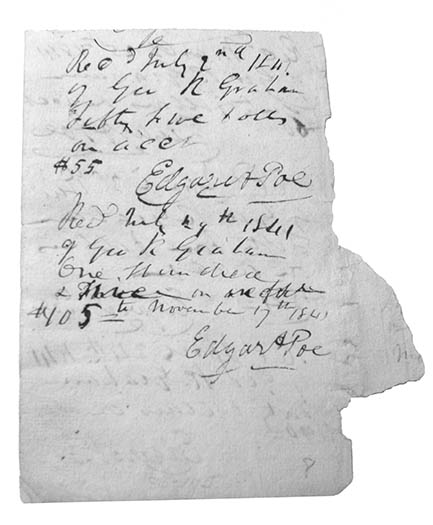 Rec'd July 2nd 1841
of Geo R Graham
Fifty five dolls
on acct
$55
Edgar A Poe
Rec'd July 29th 1841
of Geo R Graham
One Hundred
& Three on
$105 to November 17th 1841
Edgar A Poe